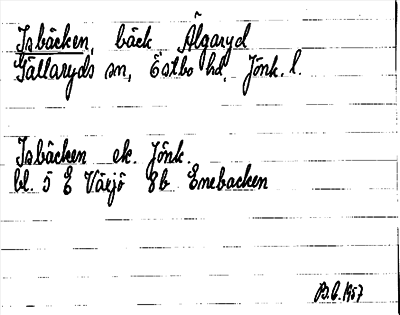 Isbäcken, bäck Älgaryd
Gällaryds sn, Östbo hd, Jönk. l.
Isbäcken ek. Jönk.
bl. 5 E Växjö 8b Enebacken
B.G. 1957